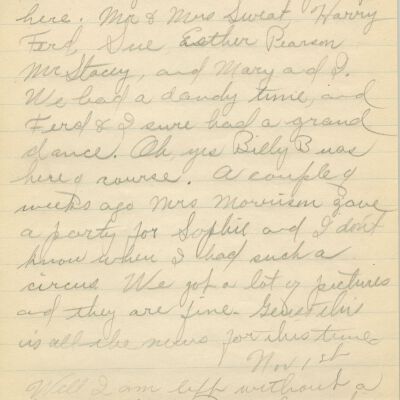 here. Mr & Mrs Sweat, Harry
Ferd, Sue Esther Pearson
Mr Stacey, and Mary and I.
We had a dandy time, and
Ferd & I sure had a grand
dance. Oh, yes Billy B was
here of course. A couple of
weeks ago Mrs Morrison gave
a party for Sophie and I don't
know when I had such a
circus We got a lot of pictures
and they are fine. Guess this
is all the news for this time.
Nov. 1st
Well I am left without a